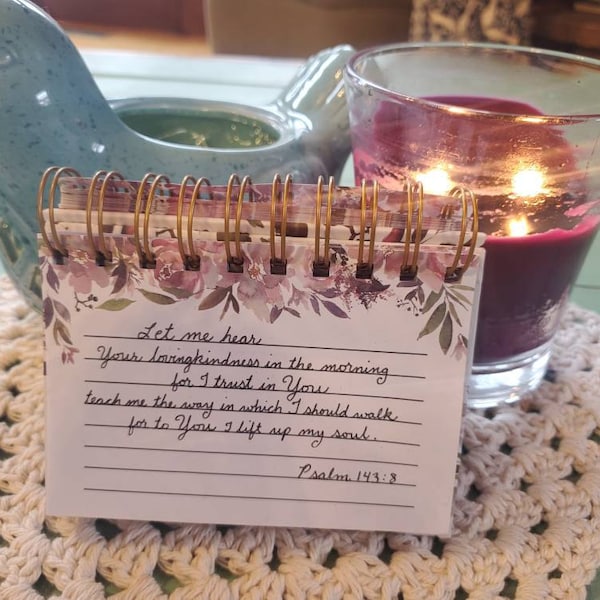 Let me hear
Your lovingkindness in the morning
for I trust in You
teach me the way in which I should walk
for to You I lift up my soul.
Psalm 143:8